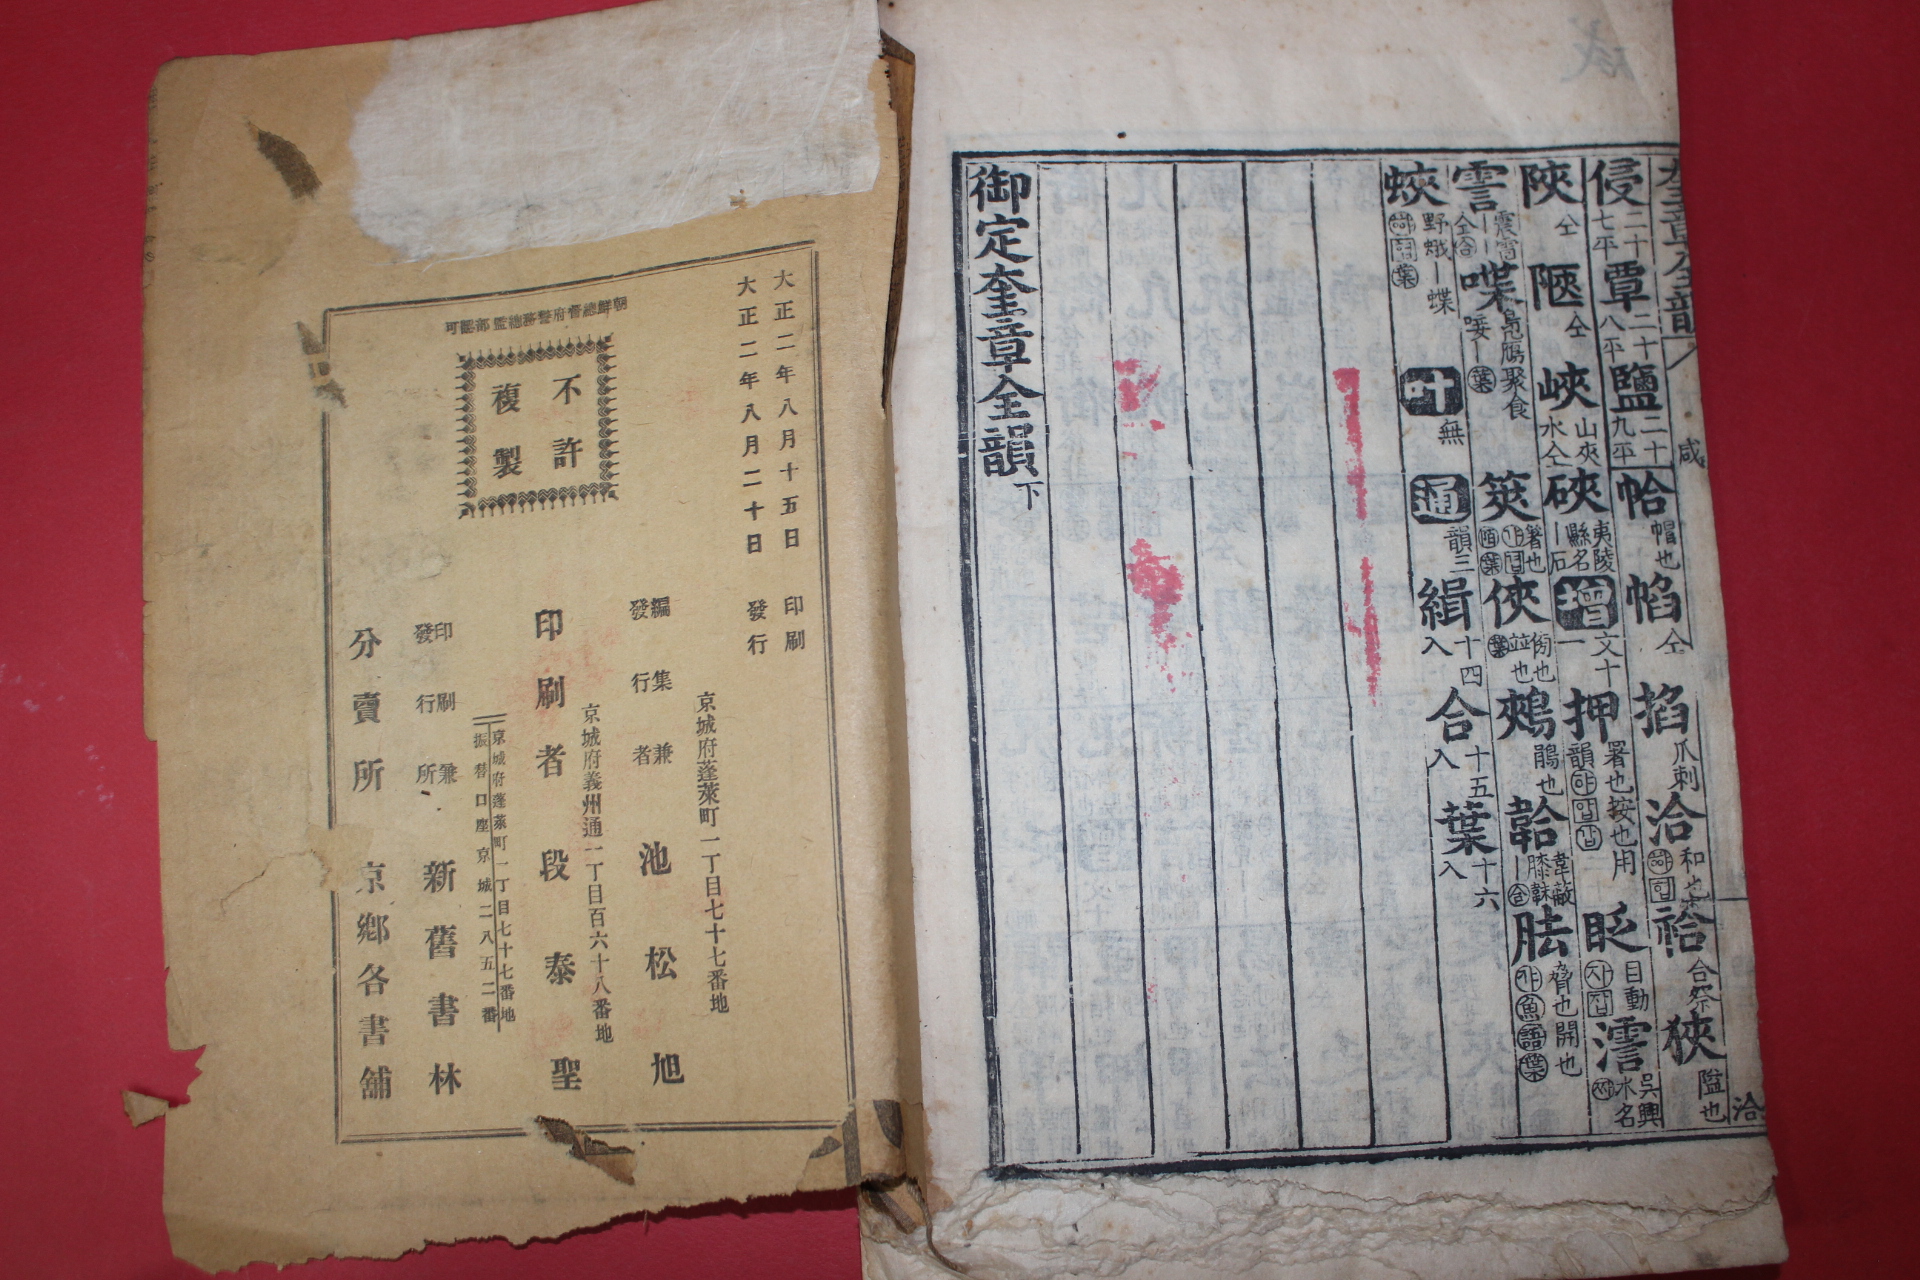 奎章全韻
咸
洽
侵二十七平
覃二十八平
鹽二十九平
帢帽也
帕仝
掐爪刺
洽和也
祫合祭
狹隘也
陜仝
陿仝
峽山夾水仝
硤夷陵縣名石
增文十一
押署也按也用韻
眨目動
霅吳興水名
霅震雷
喋鳧鴈聚食
唼
葉
筴箸也
俠傍也並也
鵊鵑也
韐韋蔽膝韎
胠脅也開也
魚語葉
蛺野蛾蝶
葉
叶無
通韻三
緝十四入
合十五入
葉十六入
御定奎章全韻下
大正二年八月十五日印刷
大正二年八月二十日發行
朝鮮總督府警務總監部認可
不許
複製
京城府蓬萊町一丁目七十七番地
編集兼發行者 池松旭
京城府義州通一丁目百六十八番地
印刷者 段泰聖
京城府蓬萊町一丁目七十七番地
振替口座京城二八五二番
印刷兼發行所 新舊書林
分賣所 京鄉各書舖